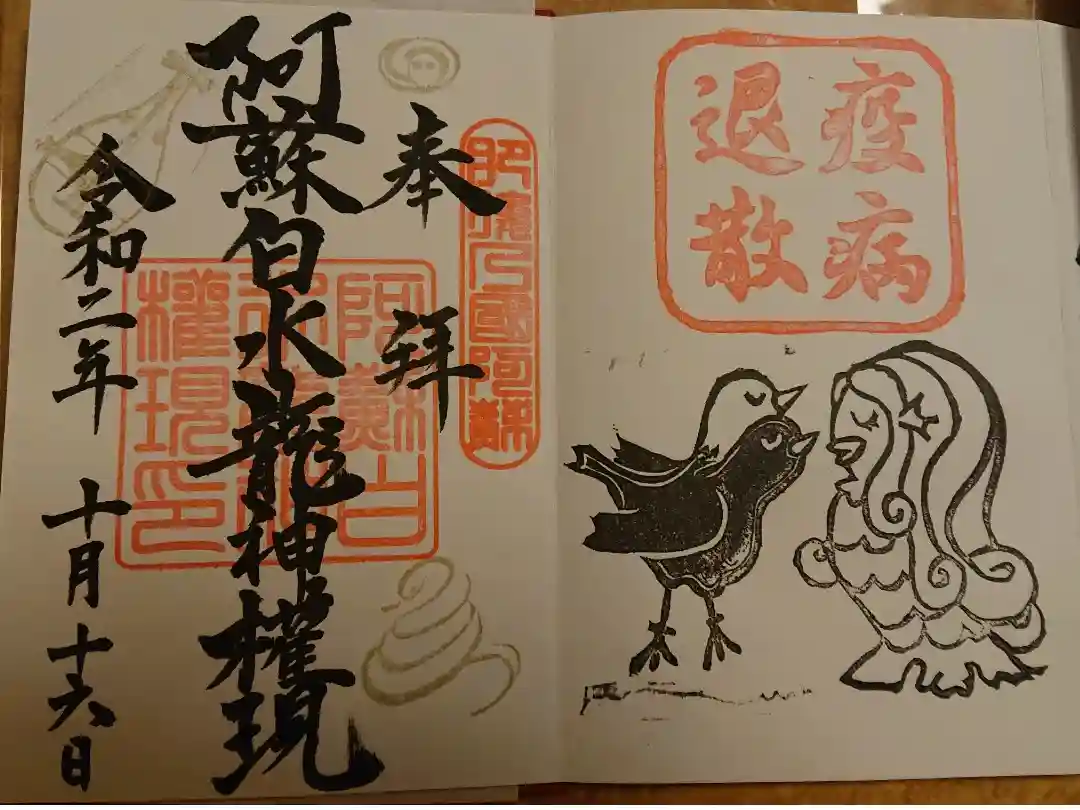 疫病
退散
肥後乃國阿蘇
奉拝
阿蘇白水龍神權現
阿蘇白
權現印
令和二年十月十六日